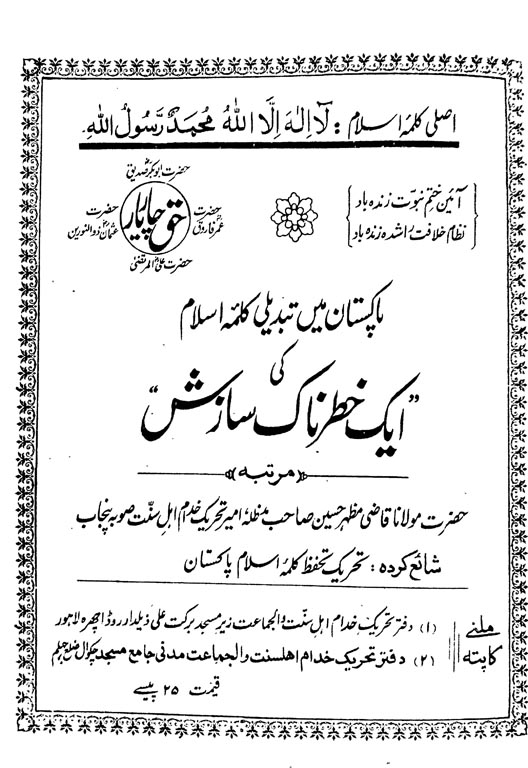 اصلی کلمۂ اسلام : لَآ اِلٰہَ اِلَّا اللہُ مُحَمَّدٌ رَّسُوْلُ اللہِ۔
آئین ختم نبوت زندہ باد
نظام خلافت راشدہ زندہ باد
حضرت ابوبکر صدیقؓ
حضرت عمر فاروقؓ
حق چار یارؓ
حضرت عثمان ذوالنورینؓ
حضرت علی المرتضیٰؓ
پاکستان میں تبدیلی کلمۂ اسلام
کی
”ایک خطرناک سازش“
مرتبہ
حضرت مولانا قاضی مظہر حسین صاحب مدظلہٗ امیر تحریک خدام اہل سنّت صوبہ پنجاب
شائع کردہ : تحریک تحفظ کلمۂ اسلام پاکستان
ملنے کا پتہ
(۱) دفتر تحریک خدام اہل سنت والجماعت زیر مسجد برکت علی ذیلدار روڈ اچھرہ لاہور
(۲) دفتر تحریک خدام اہلسنت والجماعت مدنی جامع مسجد چکوال ضلع جہلم
قیمت ۲۵ پیسے